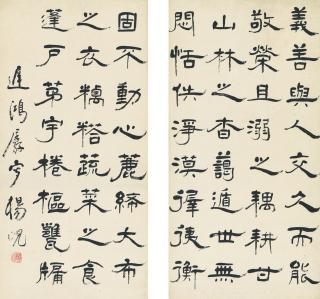 義善與人交久而能
敬榮且溺之耦耕甘
山林之杳藹遁世無
悶恬佚淨漠徲衡
固不動心麤絺大布
之衣糲蔬菜之食
蓬戶茅宇棬樞甕牖
鴻屬字楊峴